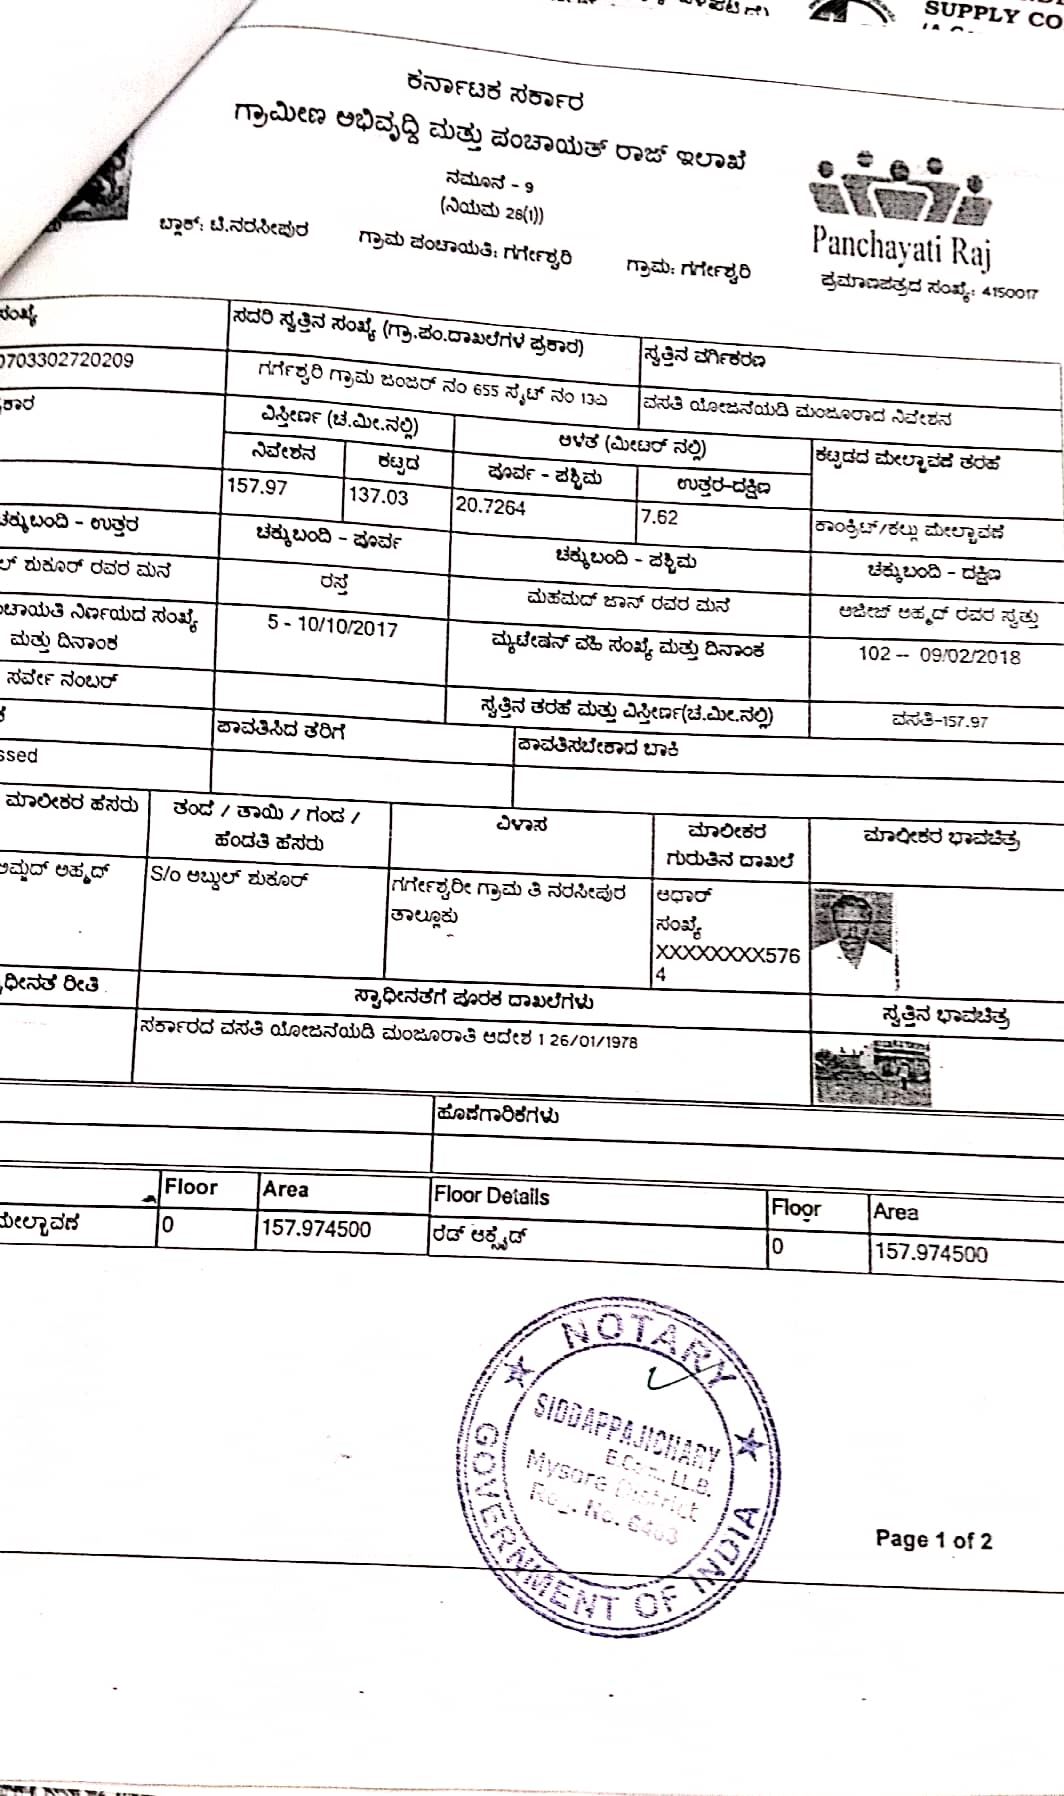 SUPPLY CO
ಕರ್ನಾಟಕ ಸರ್ಕಾರ
ಗ್ರಾಮೀಣ ಅಭಿವೃದ್ಧಿ ಮತ್ತು ಪಂಚಾಯತ್ ರಾಜ್ ಇಲಾಖೆ
ನಮೂನ - 9
(ನಿಯಮ 28(1))
ಬ್ಲಾಕ್: ಟಿ.ನರಸೀಪುರ ಗ್ರಾಮ ಪಂಚಾಯತಿ: ಗರ್ಗೇಶ್ವರಿ ಗ್ರಾಮ: ಗರ್ಗೇಶ್ವರಿ
Panchayati Raj
ಪ್ರಮಾಣಪತ್ರದ ಸಂಖ್ಯೆ: 4150017
ಸಂಖ್ಯೆ ಸದರಿ ಸ್ವತ್ತಿನ ಸಂಖ್ಯೆ (ಗ್ರಾ.ಪಂ.ದಾಖಲೆಗಳ ಪ್ರಕಾರ) ಸ್ವತ್ತಿನ ವರ್ಗಿಕರಣ
0703302720209 ಗರ್ಗೇಶ್ವರಿ ಗ್ರಾಮ ಜಂಜರ್ ನಂ 655 ಸೈಟ್ ನಂ 13ಎ ವಸತಿ ಯೋಜನೆಯಡಿ ಮಂಜೂರಾದ ನಿವೇಶನ
ಕಾರ ವಿಸ್ತೀರ್ಣ (ಚ.ಮೀ.ನಲ್ಲಿ) ಅಳತೆ (ಮೀಟರ್ ನಲ್ಲಿ) ಕಟ್ಟಡದ ಮೇಲ್ಚಾವಣೆ ತರಹೆ
ನಿವೇಶನ ಕಟ್ಟಡ ಪೂರ್ವ - ಪಶ್ಚಿಮ ಉತ್ತರ-ದಕ್ಷಿಣ
157.97 137.03 20.7264 7.62 ಕಾಂಕ್ರಿಟ್/ಕಲ್ಲು ಮೇಲ್ಚಾವಣೆ
ಚಕ್ಕುಬಂದಿ - ಉತ್ತರ ಚಕ್ಕುಬಂದಿ - ಪೂರ್ವ ಚಕ್ಕುಬಂದಿ - ಪಶ್ಚಿಮ ಚಕ್ಕುಬಂದಿ - ದಕ್ಷಿಣ
ಲ್ ಶುಕೂರ್ ರವರ ಮನೆ ರಸ್ತೆ ಮಹಮದ್ ಜಾನ್ ರವರ ಮನೆ ಅಜೀಜ್ ಅಹ್ಮದ್ ರವರ ಸ್ವತ್ತು
ಚಾಯತಿ ನಿರ್ಣಯದ ಸಂಖ್ಯೆ 5 - 10/10/2017 ಮ್ಯುಟೇಶನ್ ವಹಿ ಸಂಖ್ಯೆ ಮತ್ತು ದಿನಾಂಕ 102 -- 09/02/2018
ಮತ್ತು ದಿನಾಂಕ
ಸರ್ವೇ ನಂಬರ್ ಸ್ವತ್ತಿನ ತರಹೆ ಮತ್ತು ವಿಸ್ತೀರ್ಣ(ಚ.ಮೀ.ನಲ್ಲಿ) ವಸತಿ-157.97
ಪಾವತಿಸಿದ ತೆರಿಗೆ ಪಾವತಿಸಬೇಕಾದ ಬಾಕಿ
ssed
ಮಾಲೀಕರ ಹೆಸರು ತಂದೆ / ತಾಯಿ / ಗಂಡ / ವಿಳಾಸ ಮಾಲೀಕರ ಮಾಲೀಕರ ಭಾವಚಿತ್ರ
ಹೆಂಡತಿ ಹೆಸರು ಗುರುತಿನ ದಾಖಲೆ
ಅಮ್ಜದ್ ಅಹ್ಮದ್ S/o ಅಬ್ದುಲ್ ಶುಕೂರ್ ಗರ್ಗೇಶ್ವರೀ ಗ್ರಾಮ ತಿ ನರಸೀಪುರ ಆಧಾರ್
ತಾಲ್ಲೂಕು ಸಂಖ್ಯೆ
XXXXXXXX576
4
ಧೀನತೆ ರೀತಿ ಸ್ವಾಧೀನತೆಗೆ ಪೂರಕ ದಾಖಲೆಗಳು ಸ್ವತ್ತಿನ ಭಾವಚಿತ್ರ
ಸರ್ಕಾರದ ವಸತಿ ಯೋಜನೆಯಡಿ ಮಂಜೂರಾತಿ ಆದೇಶ 1 26/01/1978
ಹೊಣೆಗಾರಿಕೆಗಳು
Floor Area Floor Details Floor Area
ಮೇಲ್ಚಾವಣೆ 0 157.974500 ರೆಡ್ ಆಕ್ಸೈಡ್ 0 157.974500
NOTARY
SIDDAPPAJICHARY
B.Com., LL.B.
Mysore District
Reg. No. 6403
GOVERNMENT OF INDIA
Page 1 of 2